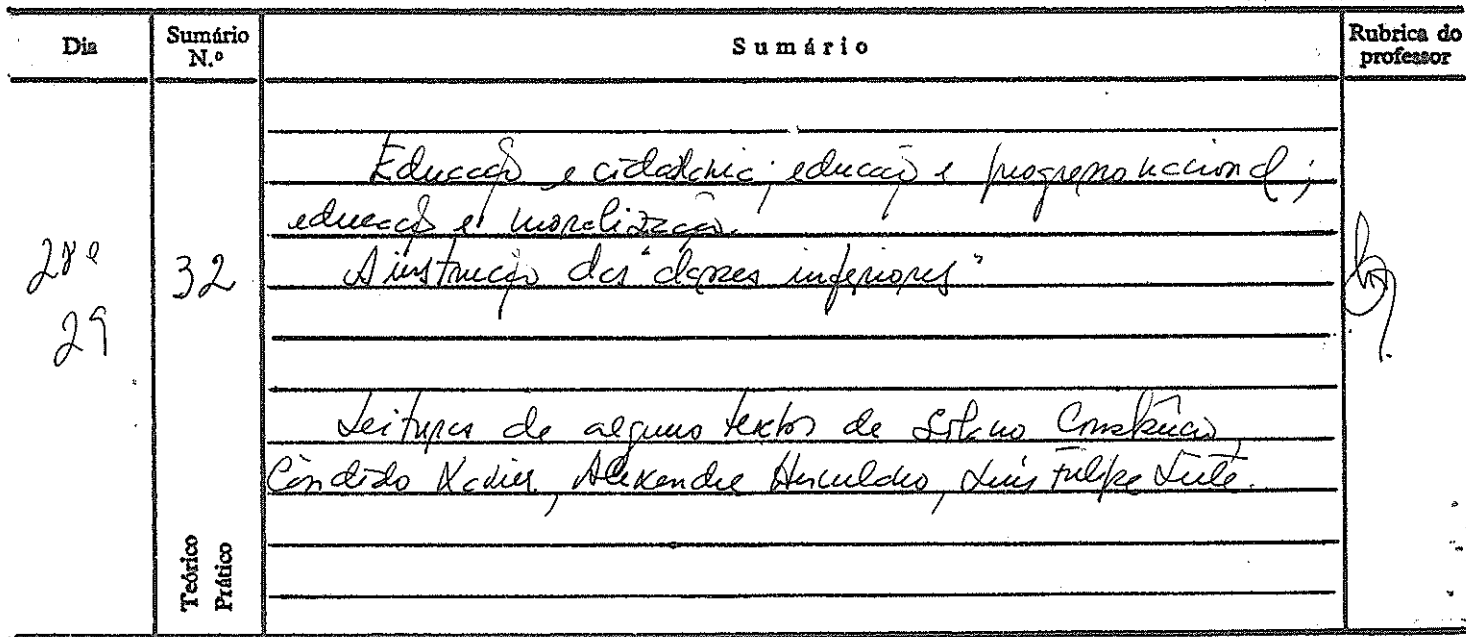 Dia
Sumário N.º
Sumário
Rubrica do professor
28 e 29
32
Educação e cidadania; educação e progresso nacional;
educação e moralização.
A instrução das "classes inferiores"
Leituras de alguns textos de Solano Constâncio,
Cândido Xavier, Alexandre Herculano, Luís Filipe Leite.
Teórico
Prático